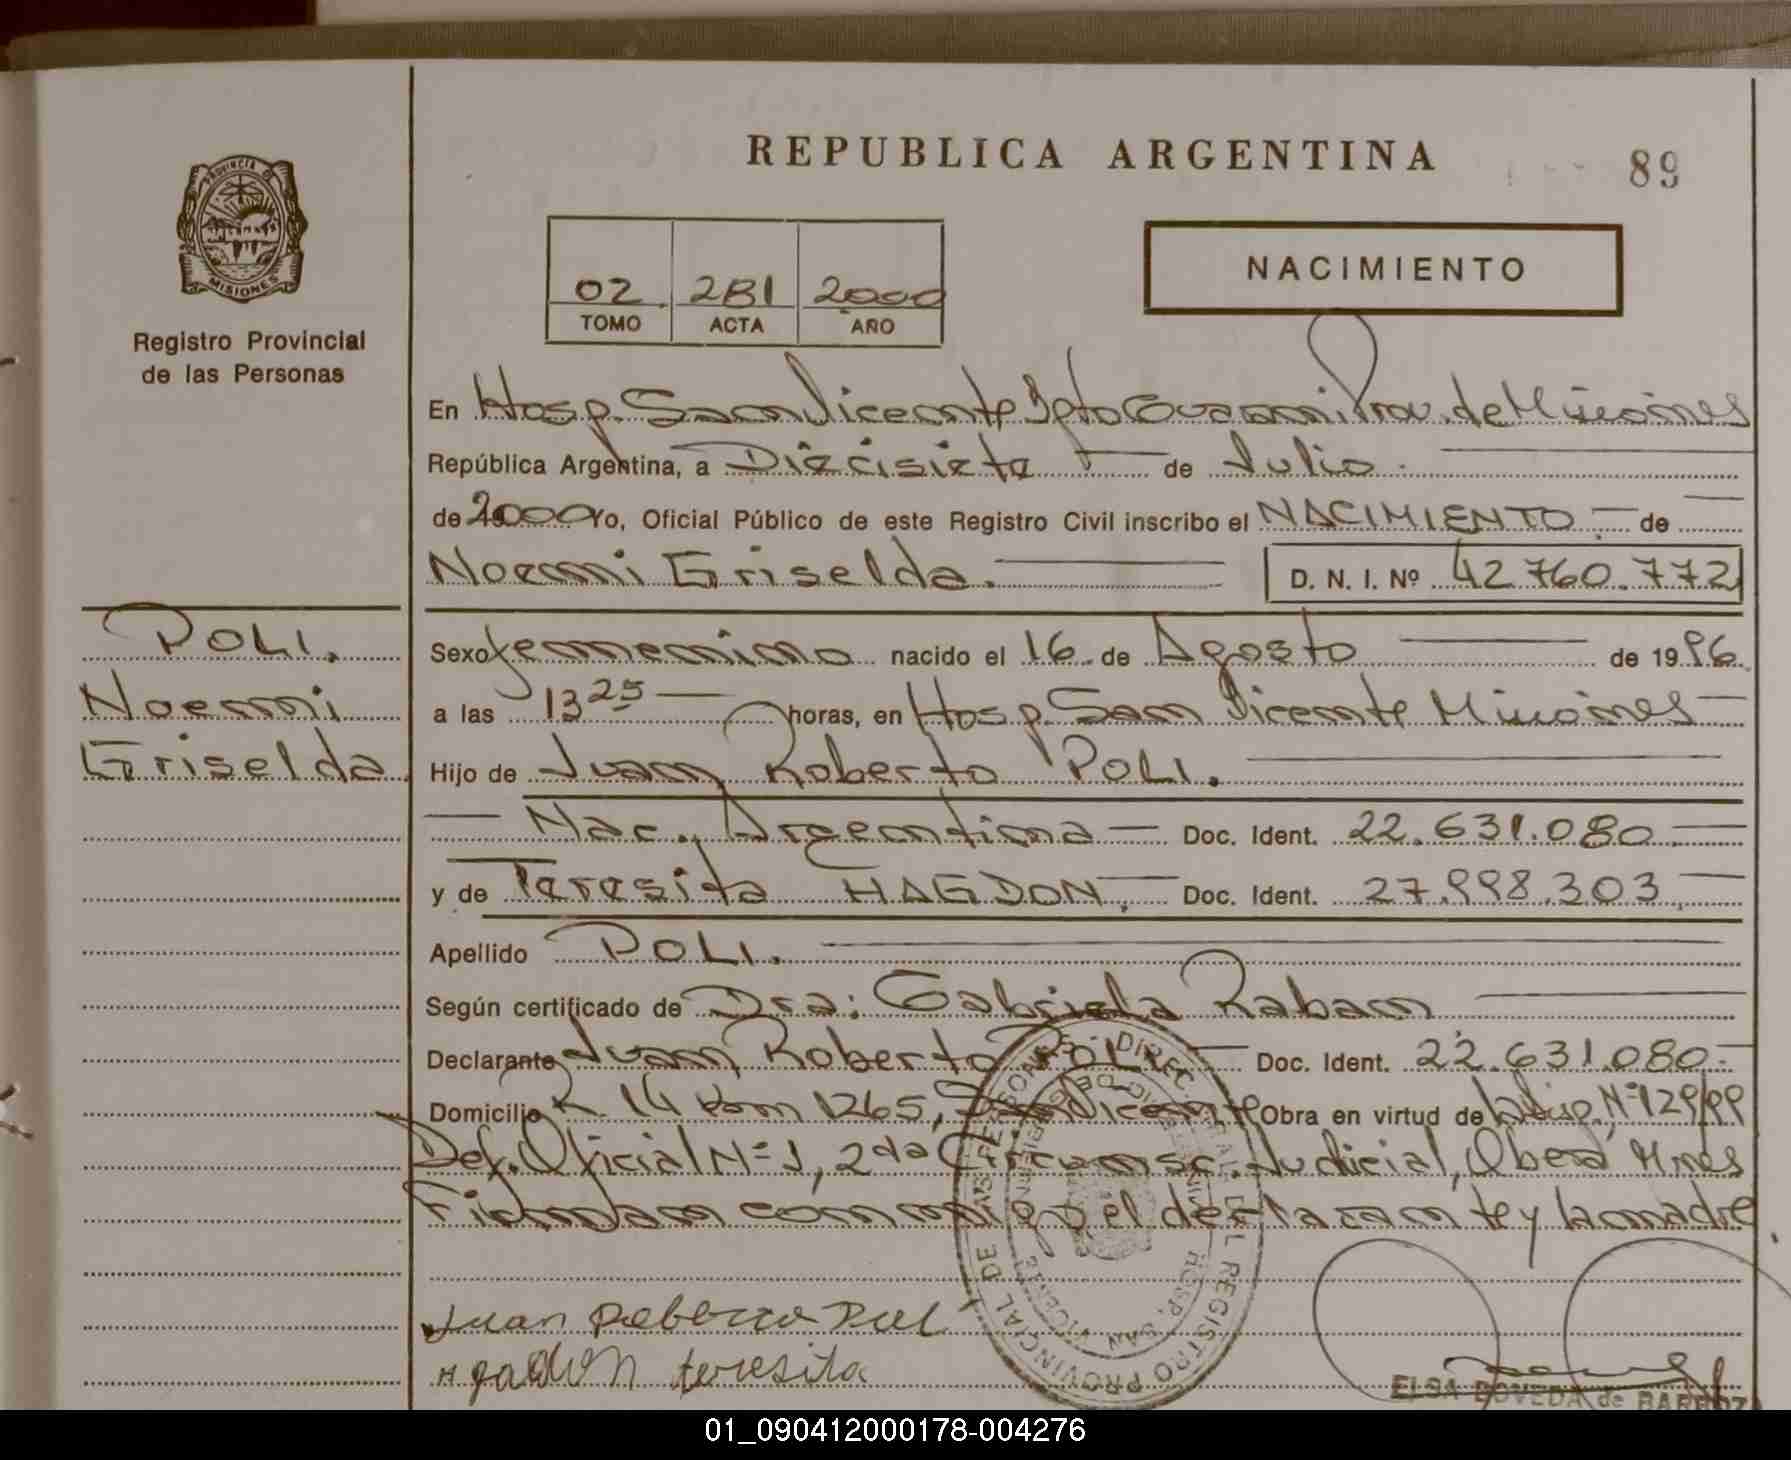 REPUBLICA ARGENTINA
89
PROVINCIA DE
MISIONES
Registro Provincial
de las Personas
NACIMIENTO
02 281 2000
TOMO ACTA AÑO
En Hosp. San Vicente Dpto Guarani Prov. de Misiones
República Argentina, a Diecisiete de Julio
de 2000 Yo, Oficial Público de este Registro Civil inscribo el NACIMIENTO de
Noemi Griselda.
D. N. I. Nº 42.760.772
POLI.
Noemi
Griselda
Sexo femenino nacido el 16 de Agosto de 1996
a las 13 25 horas, en Hosp. San Vicente Misiones
Hijo de Juan Roberto POLI.
Nac. Argentina Doc. Ident. 22.631.080
y de Teresita HAGDON. Doc. Ident. 27.998.303
Apellido POLI.
Según certificado de Dra: Gabriela Raban
Declarante Juan Roberto POLI Doc. Ident. 22.631.080
Domicilio R. 14 Km 1265, San Vicente Obra en virtud de Nº 129/99
Def. Oficial Nº 1, 2da Circunsc. Judicial, Oberá Mnes
Firman conmigo el declarante y la madre
Juan
teresita
DIREC. GRAL. DEL REGISTRO PROVINCIAL DE LAS PERSONAS
HOSP. SAN VICENTE
ELSA BOVEDA de BARBOZA
01_090412000178-004276